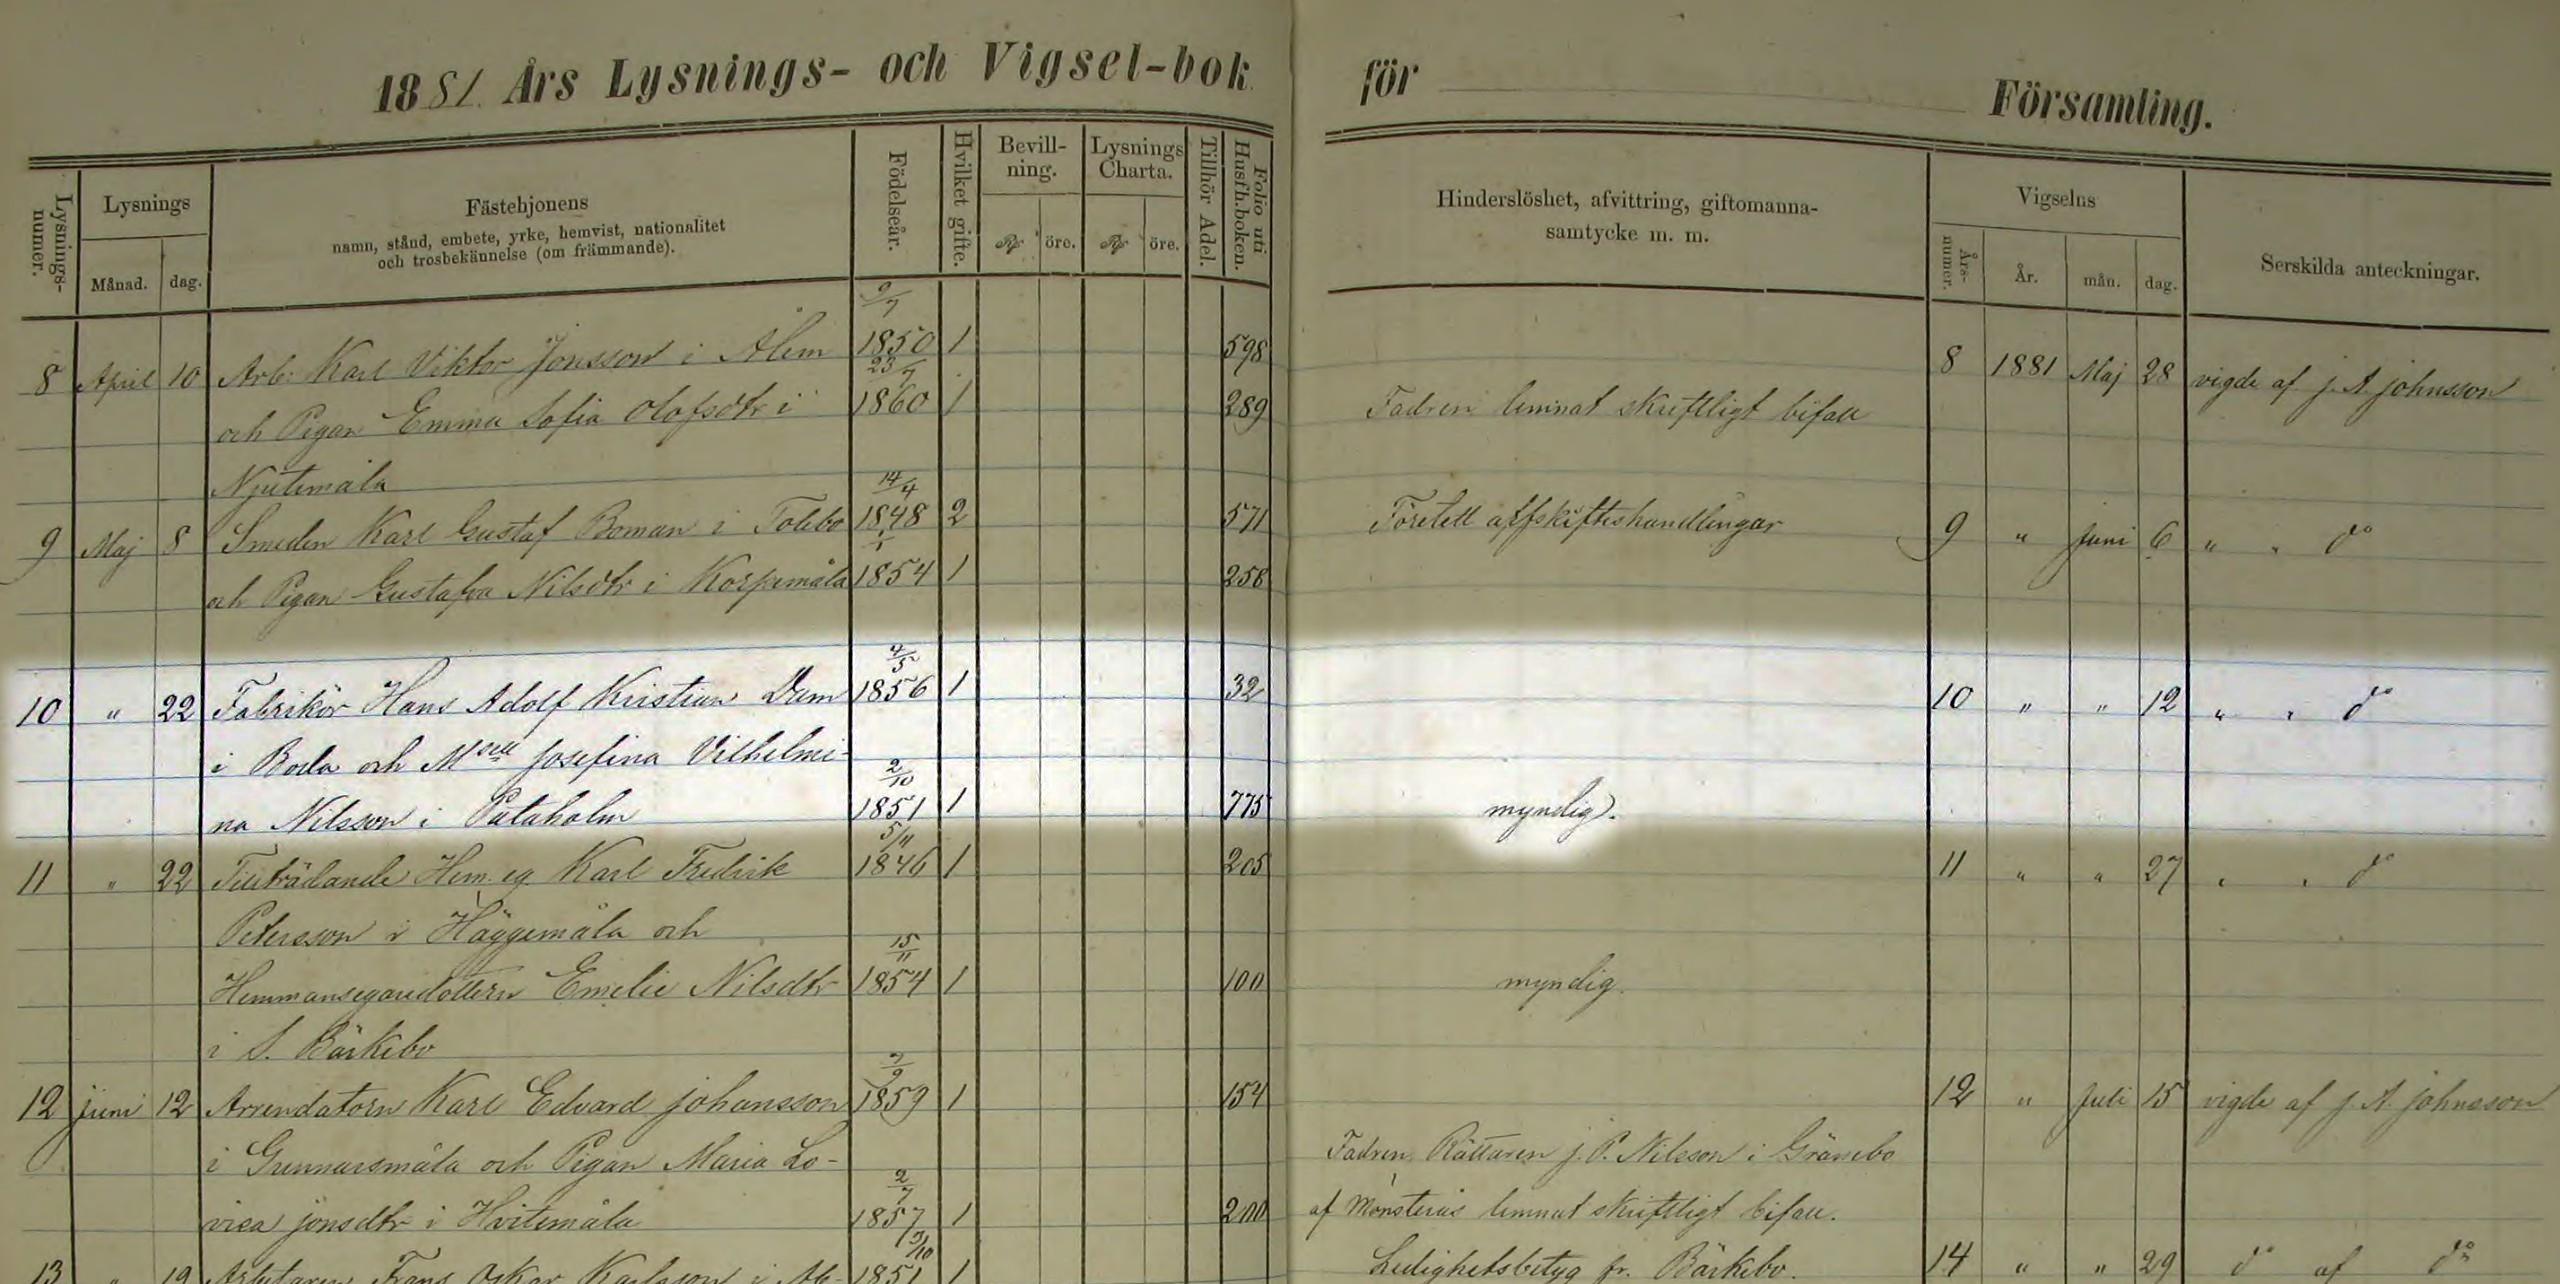 1881. Års Lysnings- och Vigsel-bok för Församling.
Lysnings-numer.
Lysnings
Månad.
dag.
Fästehjonens
namn, stånd, embete, yrke, hemvist, nationalitet
och trosbekännelse (om främmande).
Födelseår.
Hvilket gifte.
Bevill-
ning.
öre.
Lysnings
Charta.
öre.
Tillhör Adel.
Folio uti
Husfh.boken.
Hinderslöshet, afvittring, giftomanna-
samtycke m. m.
Vigselns
Års-
numer.
År.
mån.
dag.
Serskilda anteckningar.
9/7
8 April 10 Arb. Karl Viktor Jonsson i Ålem 1850 1 598 8 1881 Maj 28 vigde af J. A. Johnsson
23/7
och Pigan Emma Sofia Olofsdtr i 1860 1 289 Fadren lemnat skriftligt bifall
Njutemåla
14/4
9 Maj 8 Smeden Karl Gustaf Boman i Tolebo 1848 2 571 Företett affskiftshandlingar 9 " Juni 6 " " do
och Pigan Gustafva Nilsdtr i Korpemåla 1854 1 258
4/5
10 " 22 Fabrikör Hans Adolf Kristian Dam 1856 1 32 10 " " 12 " " do
i Boda och Msell Josefina Vilhelmi-
2/10
na Nilsson i Pataholm 1851 1 775 myndig.
5/11
11 " 22 Tillträdande Hem. eg. Karl Fredrik 1846 1 205 11 " " 27 " " do
Petersson i Häggemåla och
15/11
Hemmansegaredottern Emelie Nilsdtr 1854 1 100 myndig.
i S. Bäckebo
7/9
12 juni 12 Arrendatorn Karl Edvard Johansson 1859 1 154 12 " Juli 15 vigde af J. A. Johnsson
i Gunnarsmåla och Pigan Maria Lo- Fadren Rättaren J. P. Nilsson i Gränebo
2/7
visa Jönsdtr i Hvitemåla 1857 1 200 af Mönsterås lemnat skriftligt bifall.
13 " 19 Arbetaren Frans Oskar Karlsson i 1851 1 Ledighetsbetyg fr. Bäckebo. 14 " " 29 do af do